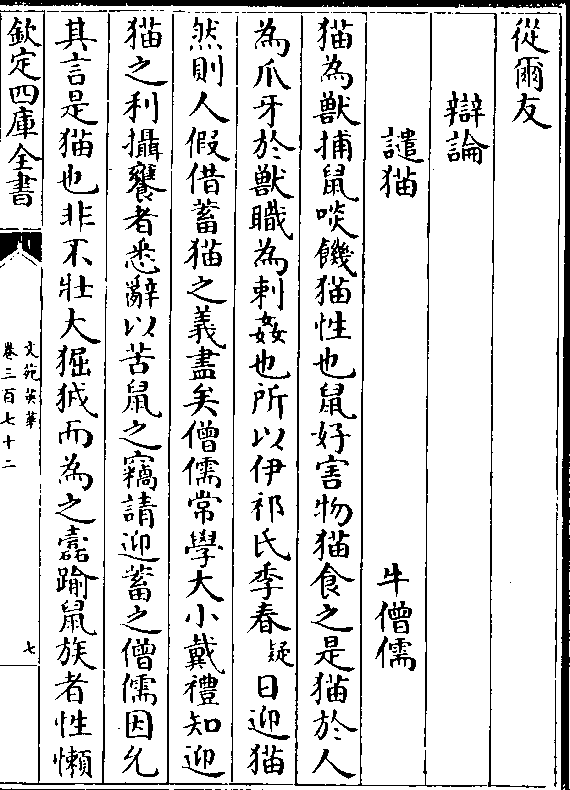 從爾友
辯論
譴猫 牛僧儒
猫為獸捕鼠啖饑猫性也鼠好害物猫食之是猫於人
為爪牙於獸職為刺姦也所以伊祁氏季春疑日迎猫
然則人假借蓄猫之義盡矣僧儒常學大小戴禮知迎
猫之利攝饔者悉辭以苦鼠之竊請迎蓄之僧儒因允
其言是猫也非不壯大猩狘而為之蠹踰鼠族者性懶
欽定四庫全書
文苑英華
卷三百七十二
七